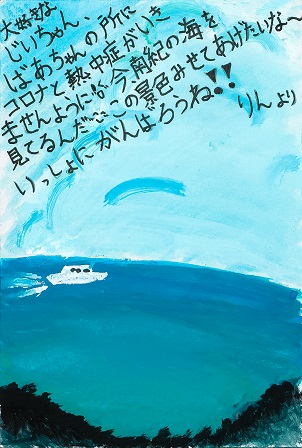 大好きな
じいちゃん、
ばあちゃんの所に
コロナと熱中症がいき
ませんように!!今南紀の海を
見てるんだ〜この景色みせてあげたいな〜
いっしょにがんばろうね!!
りんより